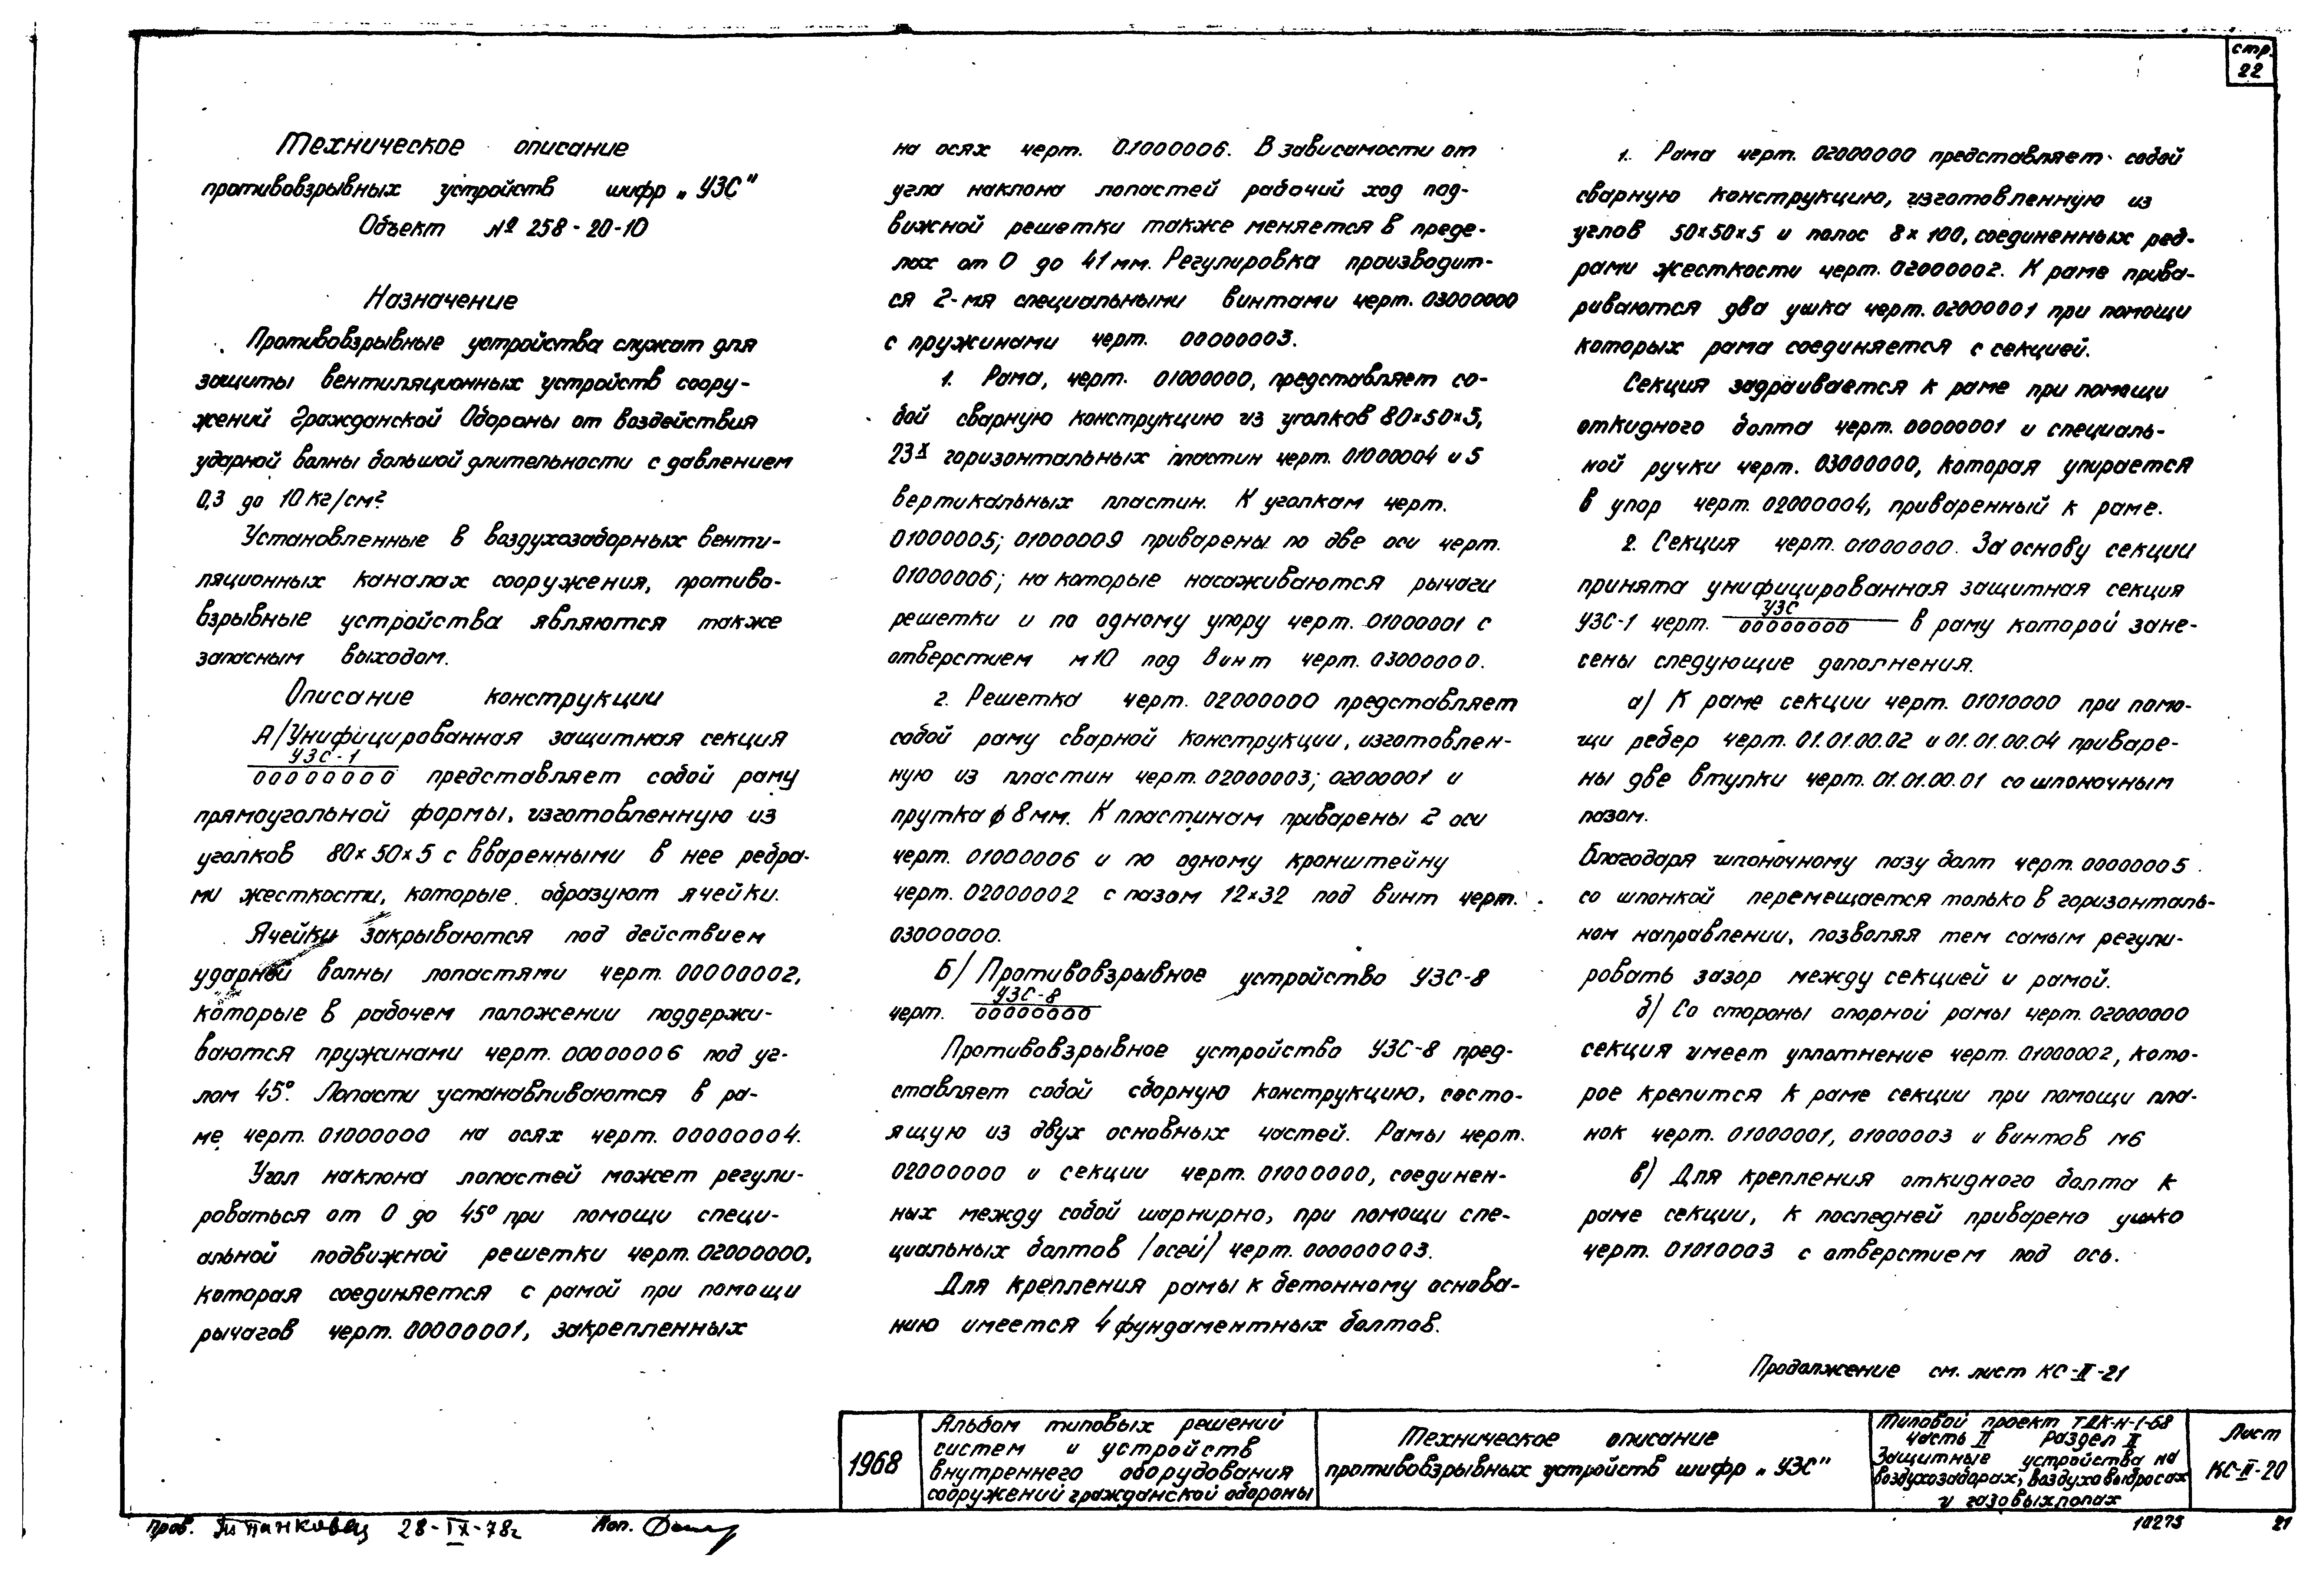 стр.
22
Техническое описание
противовзрывных устройств шифр „УЗС"
Объект № 258-20-10
Назначение
Противовзрывные устройства служат для
защиты вентиляционных устройств соору-
жений Гражданской Обороны от воздействия
ударной волны большой длительности с давлением
0,3 до 10 кг/см²
Установленные в воздухозаборных венти-
ляционных каналах сооружения, противо-
взрывные устройства являются также
запасным выходом.
Описание конструкции
А/Унифицированная защитная секция
УЗС-1
00000000 представляет собой раму
прямоугольной формы, изготовленную из
уголков 80×50×5 с вваренными в нее ребра-
ми жесткости, которые образуют ячейки.
Ячейки закрываются под действием
ударной волны лопастями черт. 00000002,
которые в рабочем положении поддержи-
ваются пружинами черт. 00000006 под уг-
лом 45°. Лопасти устанавливаются в ра-
ме черт. 01000000 на осях черт. 00000004.
Угол наклона лопастей может регули-
роваться от 0 до 45° при помощи специ-
альной подвижной решетки черт. 02000000,
которая соединяется с рамой при помощи
рычагов черт. 00000001, закрепленных
на осях черт. 01000006. В зависимости от
угла наклона лопастей рабочий ход под-
вижной решетки также меняется в преде-
лах от 0 до 41 мм. Регулировка производит-
ся 2-мя специальными винтами черт. 03000000
с пружинами черт. 00000003.
1. Рама, черт. 01000000, представляет со-
бой сварную конструкцию из уголков 80×50×5,
23х горизонтальных пластин черт. 01000004 и 5
вертикальных пластин. К уголкам черт.
01000005; 01000009 приварены по две оси черт.
01000006; на которые насаживаются рычаги
решетки и по одному упору черт. 01000001 с
отверстием м10 под винт черт. 03000000.
2. Решетка черт. 02000000 представляет
собой раму сварной конструкции, изготовлен-
ную из пластин черт. 02000003; 02000001 и
прутка ф 8мм. К пластинам приварены 2 оси
черт. 01000006 и по одному кронштейну
черт. 02000002 с пазом 12×32 под винт черт.
03000000.
Б/ Противовзрывное устройство УЗС-8
УЗС-8
черт. 00000000
Противовзрывное устройство УЗС-8 пред-
ставляет собой сборную конструкцию, состо-
ящую из двух основных частей. Рамы черт.
02000000 и секции черт. 01000000, соединен-
ных между собой шарнирно, при помощи спе-
циальных болтов /осей/ черт. 000000003.
Для крепления рамы к бетонному основа-
нию имеется 4 фундаментных болтов.
1. Рама черт. 02000000 представляет собой
сварную конструкцию, изготовленную из
углов 50×50×5 и полос 8×100, соединенных реб-
рами жесткости черт. 02000002. К раме прива-
риваются два ушка черт. 02000001 при помощи
которых рама соединяется с секцией.
Секция задраивается к раме при помощи
откидного болта черт. 00000001 и специаль-
ной ручки черт. 03000000, которая упирается
в упор черт. 02000004, приваренный к раме.
2. Секция черт. 01000000. За основу секции
принята унифицированная защитная секция
УЗС
УЗС-1 черт. 00000000 в раму которой зане-
сены следующие дополнения.
а/ К раме секции черт. 01010000 при помо-
щи ребер черт. 01.01.00.02 и 01.01.00.04 приваре-
ны две втулки черт. 01.01.00.01 со шпоночным
пазом.
Благодаря шпоночному пазу болт черт. 00000005
со шпонкой перемещается только в горизонталь-
ном направлении, позволяя тем самым регули-
ровать зазор между секцией и рамой.
б/ Со стороны опорной рамы черт. 02000000
секция имеет уплотнение черт. 01000002, кото-
рое крепится к раме секции при помощи пла-
нок черт. 01000001, 01000003 и винтов м6
в/ Для крепления откидного болта к
раме секции, к последней приварено ушко
черт. 01010003 с отверстием под ось.
Продолжение см. лист КС-II-21
1968
Альбом типовых решений
систем и устройств
внутреннего оборудования
сооружений гражданской обороны
Техническое описание
противовзрывных устройств шифр „УЗС"
Типовой проект ТДК-Н-1-68
часть II Раздел II
Защитные устройства на
воздухозаборах, воздуховыбросах
и газовыхлопах
Лист
КС-II-20
Пров. 28-IX-78г Коп.
10275 21